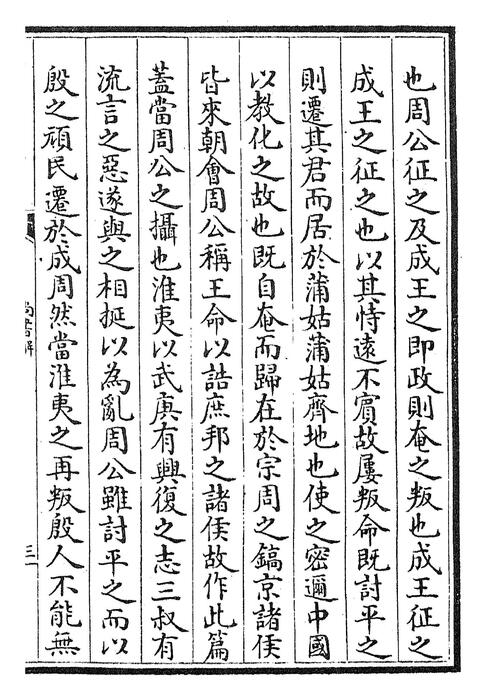 也周公征之及成王之即政則奄之叛也成王征之
成王之征之也以其恃遠不賔故屢叛命既討平之
則遷其君而居於蒲姑蒲姑齊地也使之密邇中國
以教化之故也既自奄而歸在於宗周之鎬京諸侯
皆來朝會周公稱王命以誥庶邦之諸侯故作此篇
蓋當周公之攝也淮夷以武庚有興復之志三叔有
流言之惡遂與之相挻以為亂周公雖討平之而以
殷之頑民遷於成周然當淮夷之再叛殷人不能無
尚書解
三